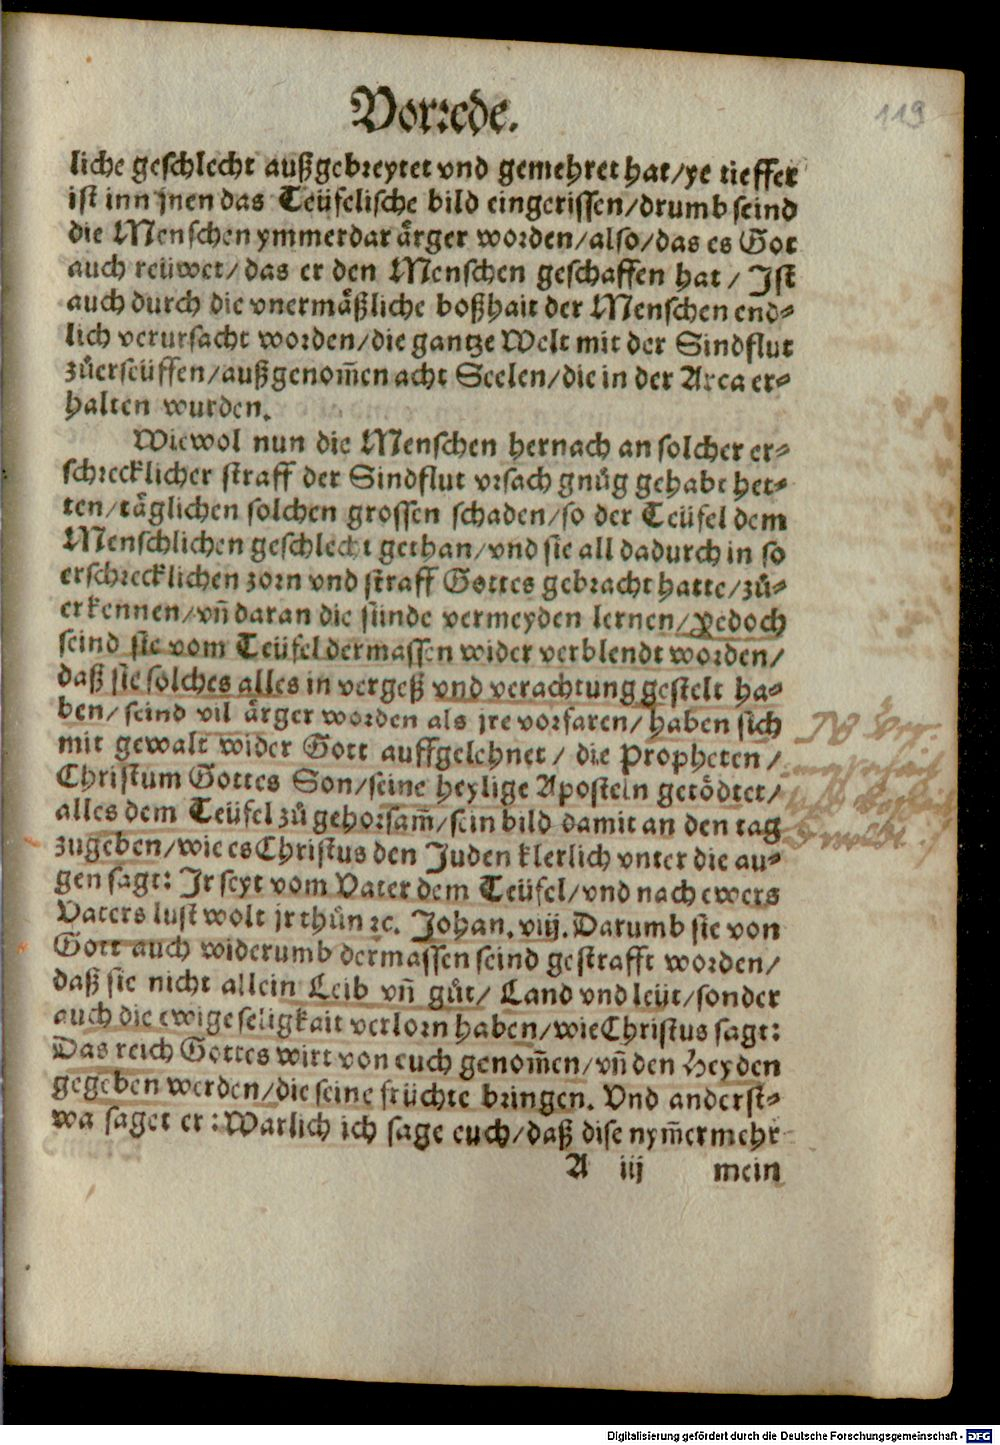 Vorrede.
119
liche geschlecht außgebreytet vnd gemehret hat/ye tieffer
ist inn jnen das Teüfelische bild eingerissen/drumb seind
die Menschen ymmerdar ärger worden/also/das es Got
auch reüwet/das er den Menschen geschaffen hat/Jst
auch durch die vnermäßliche boßhait der Menschen end⸗
lich verursacht worden/die gantze Welt mit der Sindflut
zůerseüffen/außgenom̃en acht Seelen/die in der Arca er⸗
halten wurden.
Wiewol nun die Menschen hernach an solcher er⸗
schrecklicher straff der Sindflut vrsach gnůg gehabt het⸗
ten/täglichen solchen grossen schaden/so der Teüfel dem
Menschlichen geschlecht gethan/vnd sie all dadurch in so
erschrecklichen zorn vnd straff Gottes gebracht hatte/zů⸗
erkennen/vñ daran die sünde vermeyden lernen/yedoch
seind sie vom Teüfel dermassen wider verblendt worden/
daß sie solches alles in vergeß vnd verachtung gestelt ha⸗
ben/seind vil ärger worden als jre vorfaren/haben sich
mit gewalt wider Gott auffgelehnet/die Propheten/
Christum Gottes Son/seine heylige Aposteln getödtet/
alles dem Teüfel zů gehorsam̃/sein bild damit an den tag
zugeben/wie es Christus den Juden klerlich vnter die au⸗
gen sagt: Jr seyt vom Vater dem Teüfel/vnd nach ewers
Vaters lust wolt jr thůn ꝛc. Johan. viij. Darumb sie von
Gott auch widerumb dermassen seind gestrafft worden/
daß sie nicht allein Leib vñ gůt/Land vnd leüt/sonder
auch die ewige seligkait verlorn haben/wie Christus sagt:
Das reich Gottes wirt von euch genom̃en/vñ den Heyden
gegeben werden/die seine früchte bringen. Vnd anderst⸗
wa saget er: Warlich ich sage euch/daß dise nym̃ermehr
A iij mein
Digitalisierung gefördert durch die Deutsche Forschungsgemeinschaft - DFG